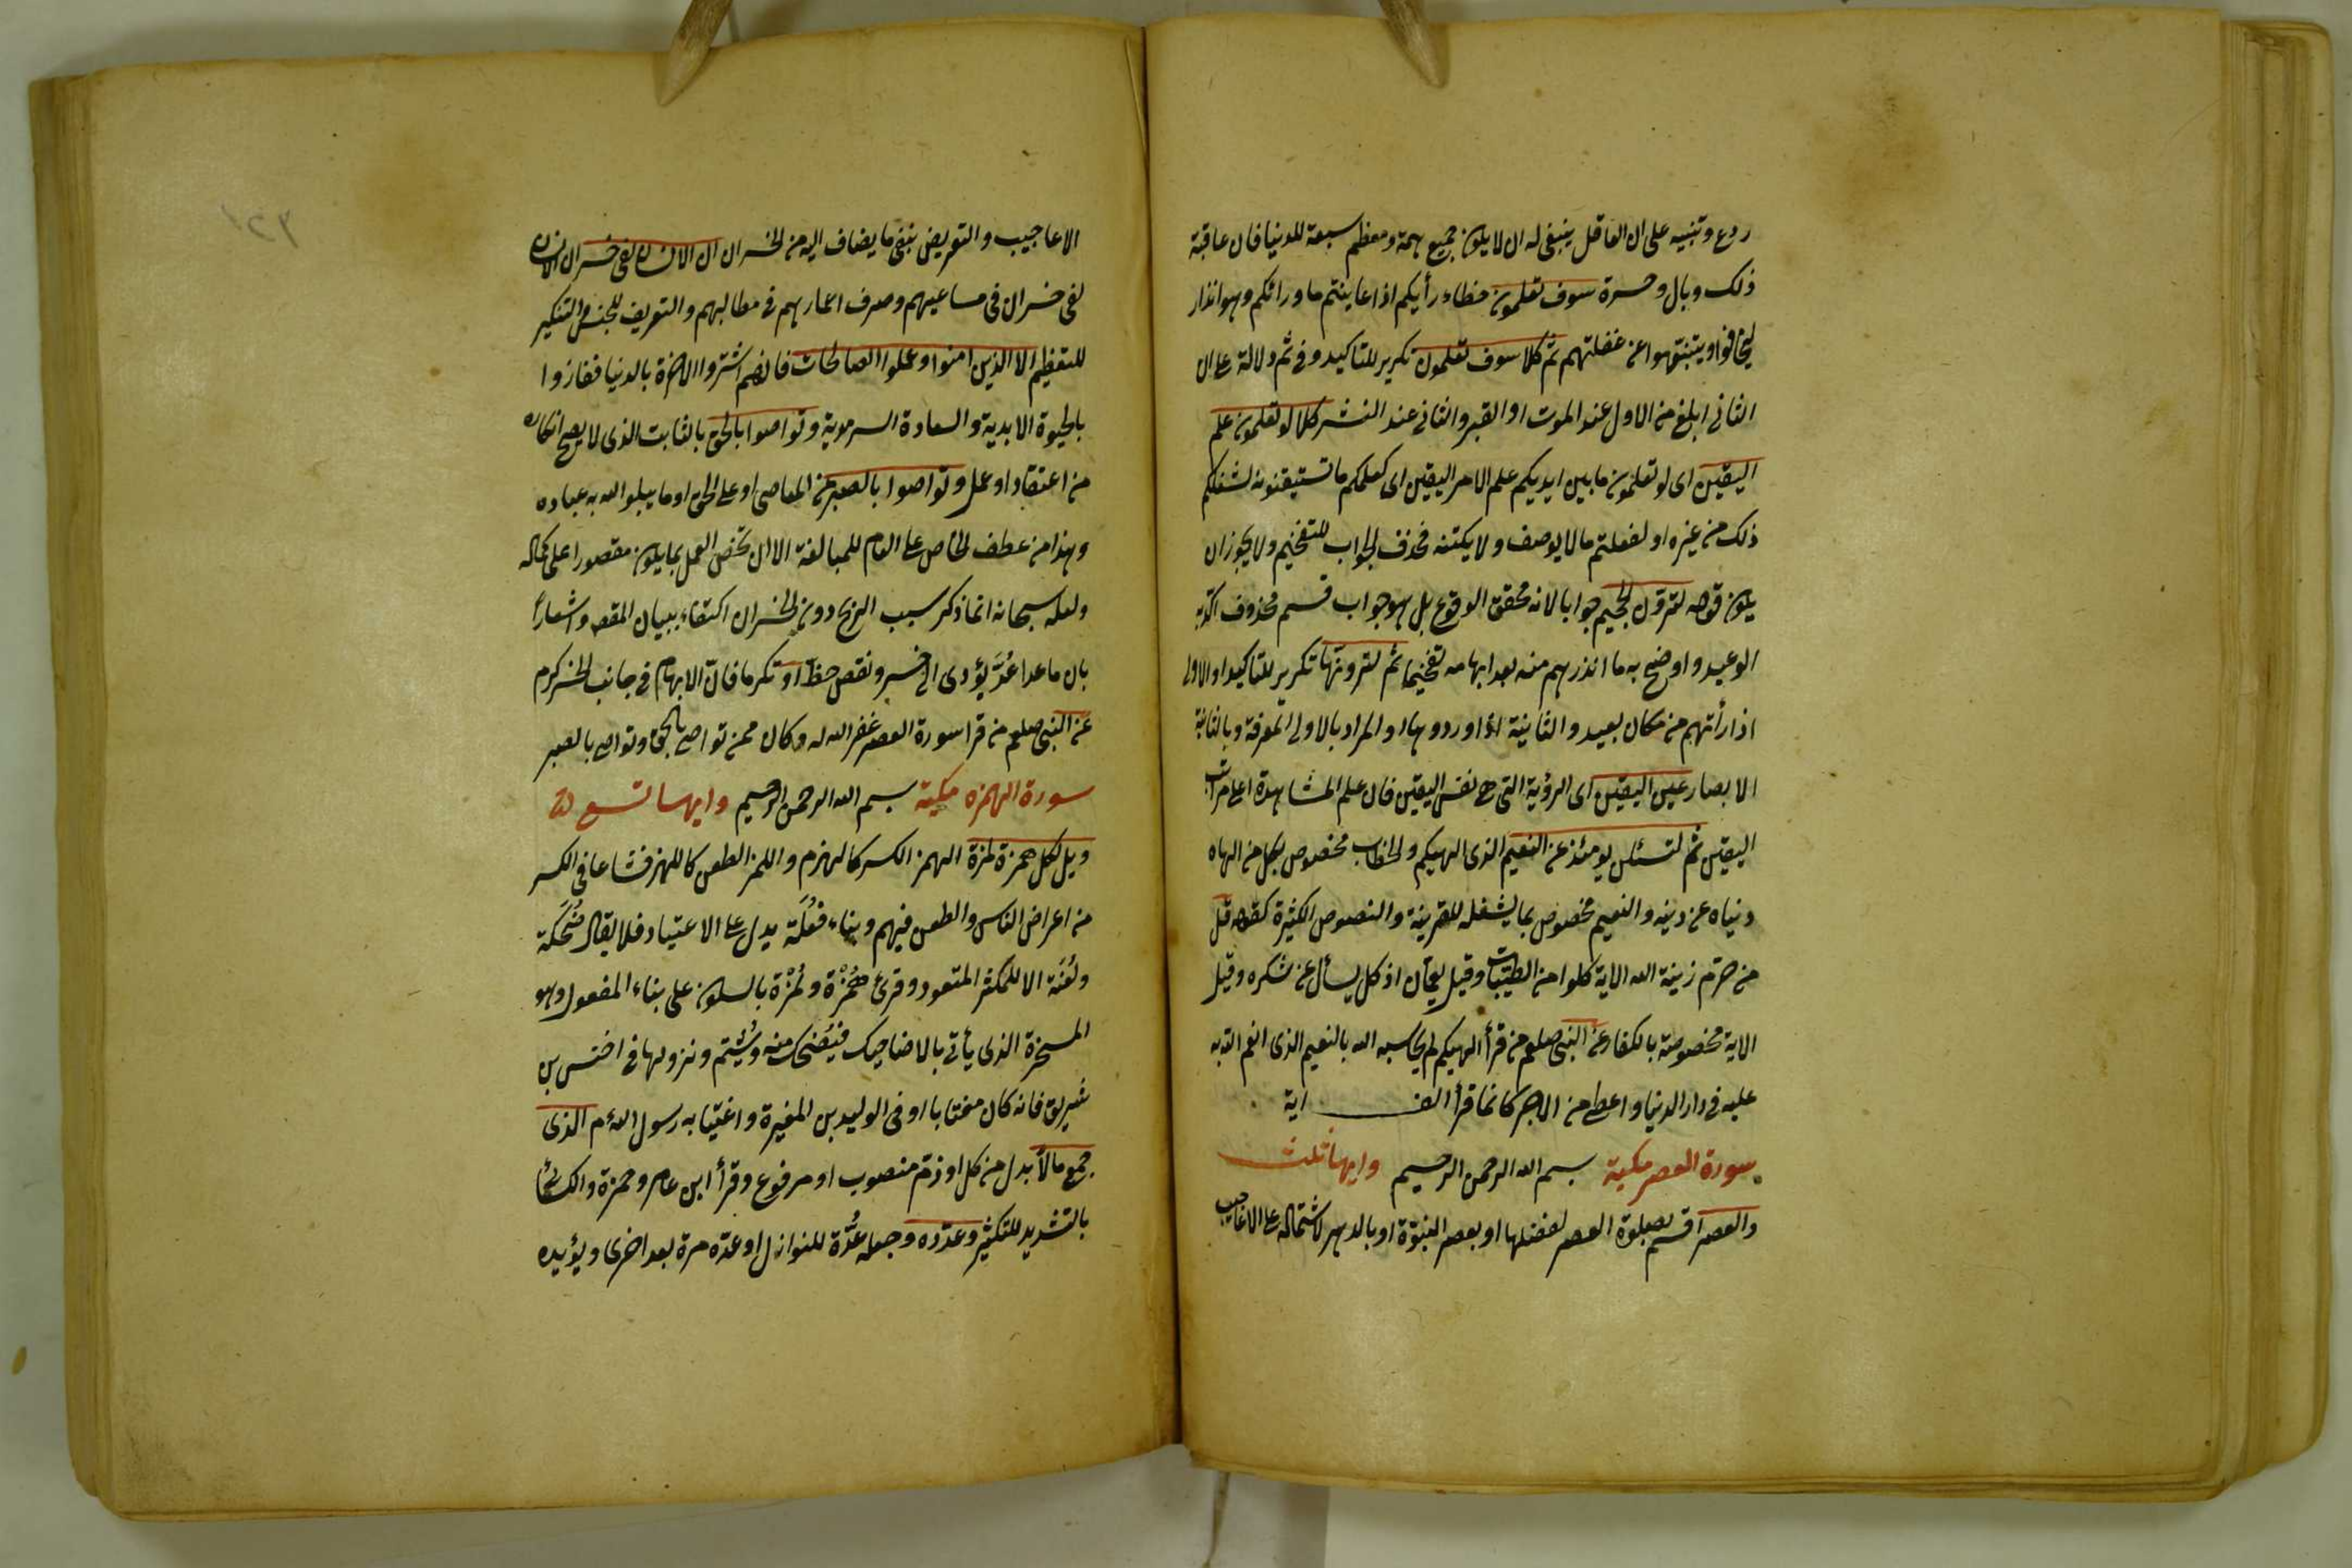 ردع وتنبيه على ان العاقل ينبغي له ان لا يكون جميع همه ومعظم سعيه للدنيا فان عاقبة
ذلك وبال وحسرة سوف تعلمون خطاء رأيكم اذا عاينتم ما ورائكم وهو انذار
ليخافوا ويتنبهوا عن غفلتهم ثم كلا سوف تعلمون تكرير للتاكيد وفي ثم دلالة على ان
الثاني ابلغ من الاول عند الموت او القبر والثاني عند النشر كلا لو تعلمون علم
اليقين اى لو تعلمون ما بين ايديكم علم الامر اليقين اى كعلمكم ما تستيقنونه لشغلكم
ذلك من غيره او لفعلتم ما لا يوصف ولا يكتنه فحذف الجواب للتفخيم ولا يجوز ان
يكون قوله لترون الجحيم جوابا لانه محقق الوقوع بل هو جواب قسم محذوف اكد به
الوعيد واوضح به ما انذرهم منه بعد ابهامه تفخيما ثم لترونها تكرير للتاكيد او الاولى
اذا رأتهم من مكان بعيد والثانية اذا وردوها او المراد بالاولى المعرفة وبالثانية
الابصار عين اليقين اى الرؤية التى هى نفس اليقين فان علم المشاهدة اعلى مراتب
اليقين ثم لتسئلن يومئذ عن النعيم الذى الهيكم والخطاب مخصوص بكل من الهاه
دنياه عن دينه والنعيم مخصوص بما يشغله للقرينة والنصوص الكثيرة كقوله قل
من حرم زينة الله الاية كلوا من الطيبات وقيل يعمان اذ كل يسأل عن شكره وقيل
الاية مخصوصة بالكفار عن النبى صلعم من قرأ الهيكم لم يحاسبه الله بالنعيم الذى انعم الله به
عليه فى دار الدنيا واعطى من الاجر كانما قرأ الف اية
سورة العصر مكية بسم الله الرحمن الرحيم وايها ثلث
والعصر اقسم بصلوة العصر لفضلها او بعصر النبوة او بالدهر لاشتماله على الاعاجيب
الاعاجيب والتعريض بنفى ما يضاف اليه من الخسران ان الانسان لفى خسر ان الانسان
لفى خسران فى مساعيهم وصرف اعمارهم فى مطالبهم والتعريف للجنس والتنكير
للتعظيم الا الذين امنوا وعملوا الصالحات فانهم اشتروا الاخرة بالدنيا ففازوا
بالحيوة الابدية والسعادة السرمدية وتواصوا بالحق بالثابت الذى لا يصح انكاره
من اعتقاد او عمل وتواصوا بالصبر عن المعاصى او على الحق او ما يبلو الله به عباده
وهذا من عطف الخاص على العام للمبالغة الا ان تخص العمل بما يكون مقصورا على كماله
ولعله سبحانه انما ذكر سبب الربح دون الخسران اكتفاء ببيان المقص واشعارا
بان ما عدا عُدَّ يؤدى الى خسر ونقص حظ او تكرما فان الابهام فى جانب الخسر كرم
عن النبى صلعم من قرا سورة العصر غفر الله له وكان ممن تواصى بالحق وتواصى بالصبر
سورة الهمزه مكية بسم الله الرحمن الرحيم وايها تسع
ويل لكل همزة لمزة الهمز الكسر كالهزم واللمز الطعن كاللهز فشاعا فى الكسر
من اعراض الناس والطعن فيهم وبناء فُعُلَة يدل على الاعتياد فلا يقال ضُحَكة
ولُعَنَة الا للمكثر المتعود وقرئ هُمْزَة ولُمْزَة بالسكون على بناء المفعول وهو
المسخرة الذى يأتى بالاضاحيك فيُضحك منه ويُشتم ونزولها فى اخنس بن
شريق فانه كان مغتابا او فى الوليد بن المغيرة واغتيابه رسول الله م الذى
جمع مالا بدل من كل او ذم منصوب او مرفوع وقرأ ابن عامر وحمزة والكسائى
بالتشديد للتكثير وعدده وجعله عُدَّة للنوازل او عده مرة بعد اخرى ويؤيده